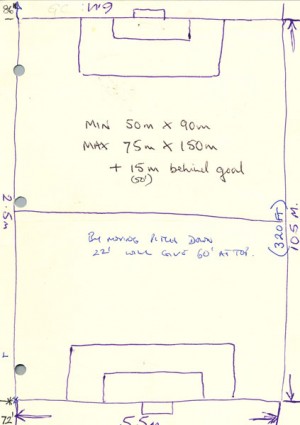 86'
MIN 50m X 90m
MAX 75m X 150m
+ 15m behind goal
(50')
2.5m
BY MOVING PITCH DOWN
22' WILL GIVE 60' AT TOP.
(320 FT)
105 M.
72'
55m